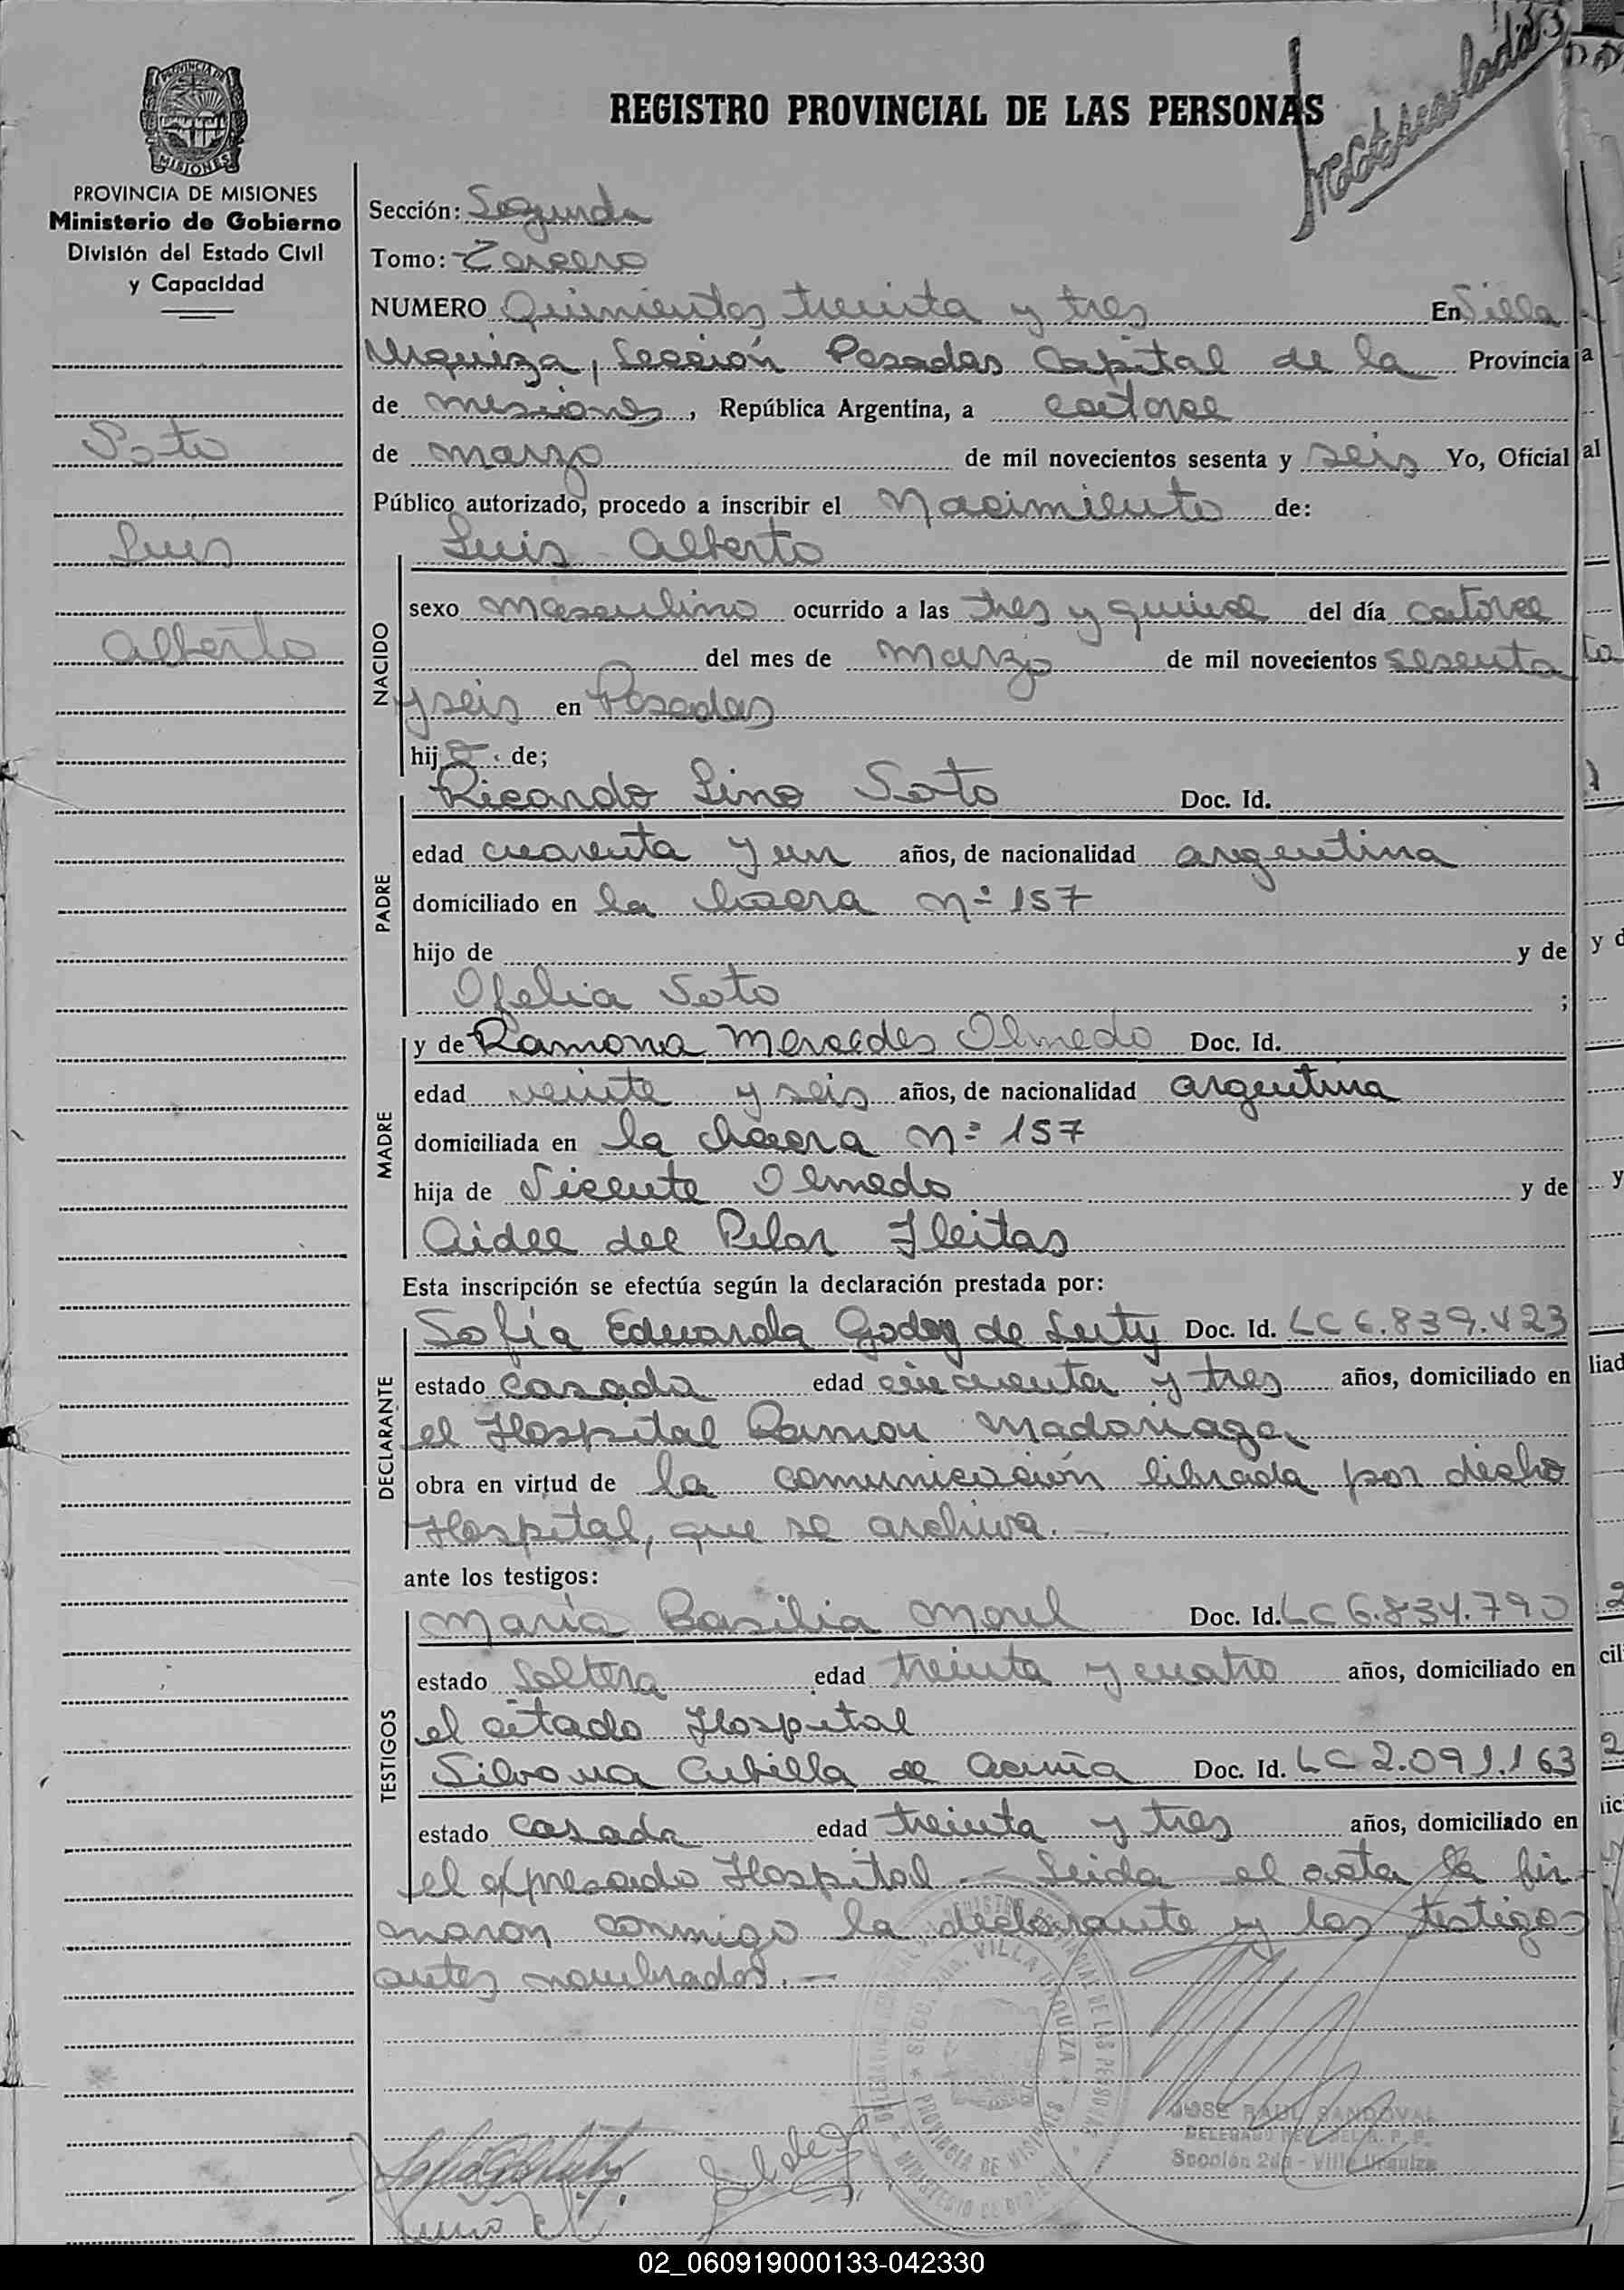 Inmatriculados
PROVINCIA DE
MISIONES
REGISTRO PROVINCIAL DE LAS PERSONAS
PROVINCIA DE MISIONES
Ministerio de Gobierno
División del Estado Civil
y Capacidad
Soto
Luis
Alberto
Sección: Segunda
Tomo: Tercero
NUMERO Quinientos treinta y tres En Villa
Urquiza, Sección Posadas Capital de la Provincia
de Misiones, República Argentina, a catorce
de marzo de mil novecientos sesenta y seis Yo, Oficial
Público autorizado, procedo a inscribir el Nacimiento de:
Luis Alberto
NACIDO
sexo masculino ocurrido a las tres y quince del día catorce
del mes de marzo de mil novecientos sesenta
y seis en Posadas
hijo de;
Ricardo Lino Soto Doc. Id.
PADRE
edad cuarenta y un años, de nacionalidad argentina
domiciliado en la chacra nº 157
hijo de y de
Ofelia Soto ;
y de Ramona Mercedes Olmedo Doc. Id.
MADRE
edad veinte y seis años, de nacionalidad argentina
domiciliada en la chacra nº 157
hija de Vicente Olmedo y de
Aidee del Pilar Fleitas
Esta inscripción se efectúa según la declaración prestada por:
Sofía Eduarda Godoy de Doc. Id. LC 6.839.423
DECLARANTE
estado casada edad cincuenta y tres años, domiciliado en
el Hospital Ramon Madariaga
obra en virtud de la comunicación librada por dicho
Hospital, que se archiva.—
ante los testigos:
María Basilia Morel Doc. Id. LC 6.834.790
TESTIGOS
estado Soltera edad treinta y cuatro años, domiciliado en
el citado Hospital
Silvana Cubilla de Acuña Doc. Id. LC 2.091.163
estado casada edad treinta y tres años, domiciliado en
el expresado Hospital — Leida el acta la fir-
maron conmigo la declarante y los testigos
antes nombrados.—
SECC. 2da. VILLA URQUIZA
PROVINCIA DE MISIONES
MINISTERIO DE GOBIERNO
JOSE RAUL SANDOVAL
Sección 2da - Villa Urquiza
02_060919000133-042330